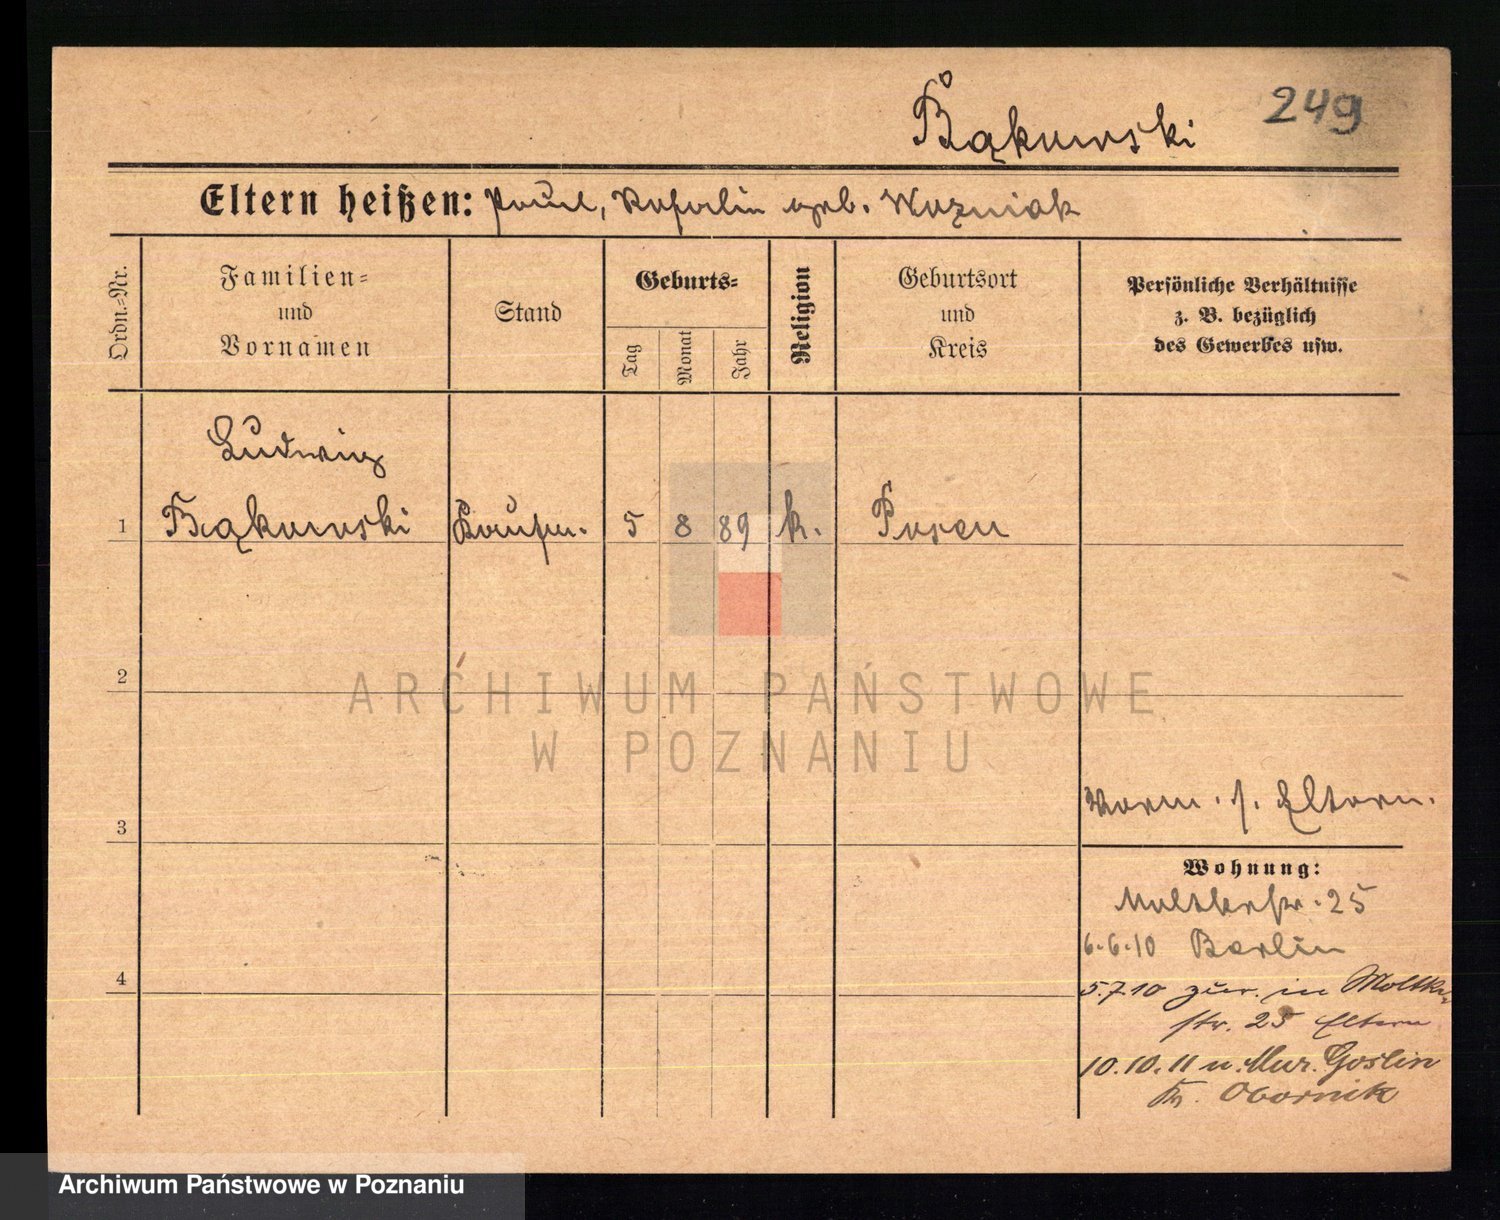 Bąkowski 249
Eltern heißen: Paul, Katarlin geb. Wozniak
Ordn.-Nr.
Familien-
und
Vornamen
Stand
Geburts-
Tag
Monat
Jahr
Religion
Geburtsort
und
Kreis
Persönliche Verhältnisse
z. B. bezüglich
des Gewerbes usw.
Ludwig
1 Bąkowski Kaufm. 5 8 89 k. Posen
2
ARCHIWUM PAŃSTWOWE
W POZNANIU
3
s. Eltern.
Wohnung:
Moltkestr. 25
6.6.10 Berlin
4
5.7.10 zur. in Moltke
str. 25 Eltern
10.10.11 n. Mur. Goslin
Kr. Obornik
Archiwum Państwowe w Poznaniu